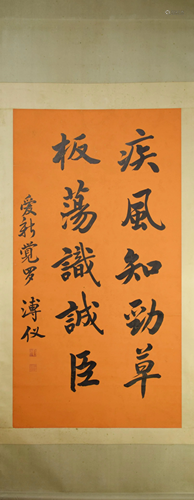 疾風知勁草
板蕩識誠臣
爱新觉罗 溥仪